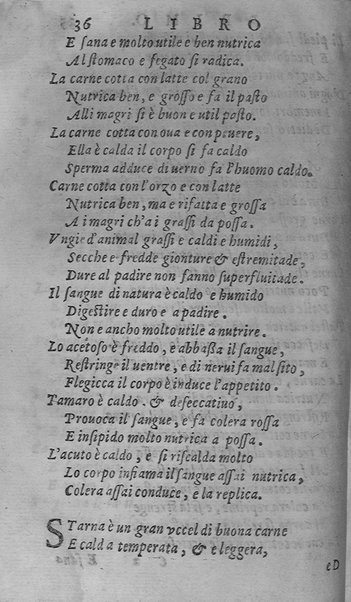 36 LIBRO
E sana e molto utile e ben nutrica
Al stomaco e fegato si radica.
La carne cotta con latte col grano
Nutrica ben, e grosso e fa il pasto
Alli magri si è buon e util pasto.
La carne cotta con oua e con peuere,
Ella è calda il corpo si fa caldo
Sperma adduce di uerno fa l'huomo caldo.
Carne cotta con l'orzo e con latte
Nutrica ben, ma e rifatta e grossa
A i magri ch'a i grassi da possa.
Vngie d'animal grassi e caldi e humidi,
Secche e fredde gionture & estremitade,
Dure al padire non fanno superfluitade.
Il sangue di natura è caldo e humido
Digestire e duro e a padire.
Non e ancho molto utile a nutrire.
Lo acetoso è freddo, e abbassa il sangue,
Restringe il uentre, e di nerui fa mal sito,
Flegicca il corpo è induce l'appetito.
Tamaro è caldo. & deseccatiuo,
Prouoca il sangue, e fa colera rossa
E insipido molto nutrica a possa.
L'acuto è caldo, e si riscalda molto
Lo corpo infiama il sangue assai nutrica,
Colera assai conduce, e la replica.
STarna è un gran vccel di buona carne
E cald a temperata, & e leggera,
eD